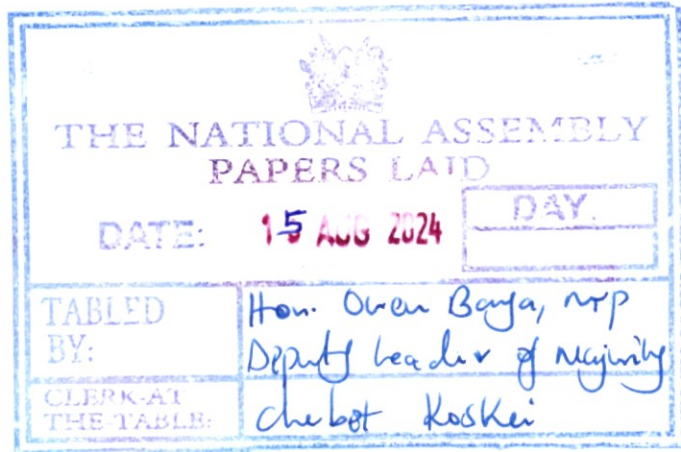 THE NATIONAL ASSEMBLY
PAPERS LAID
DATE: 15 AUG 2024 DAY.
TABLED BY: Hon. Owen Baya, MP
Deputy Leader of Majority
CLERK-AT THE-TABLE: Chebet Koskei